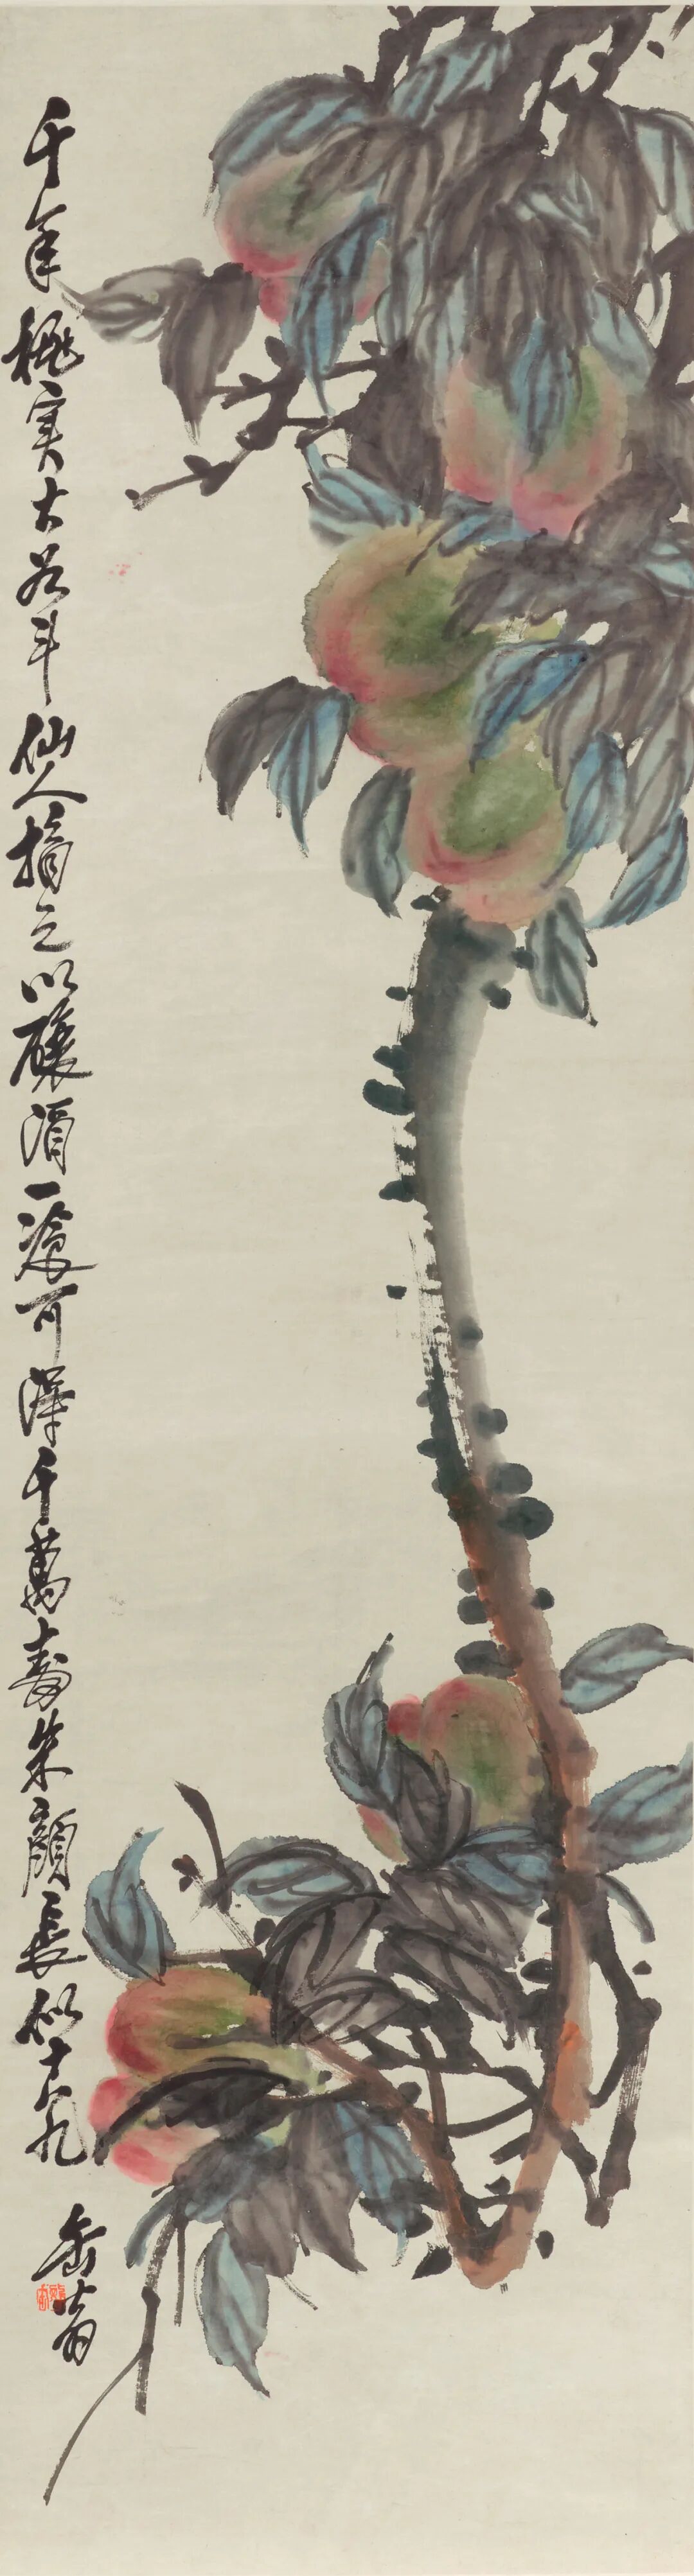 千年桃實大若斗仙人摘之以釀酒一飲可得千萬壽朱顏長似十八九
缶翁